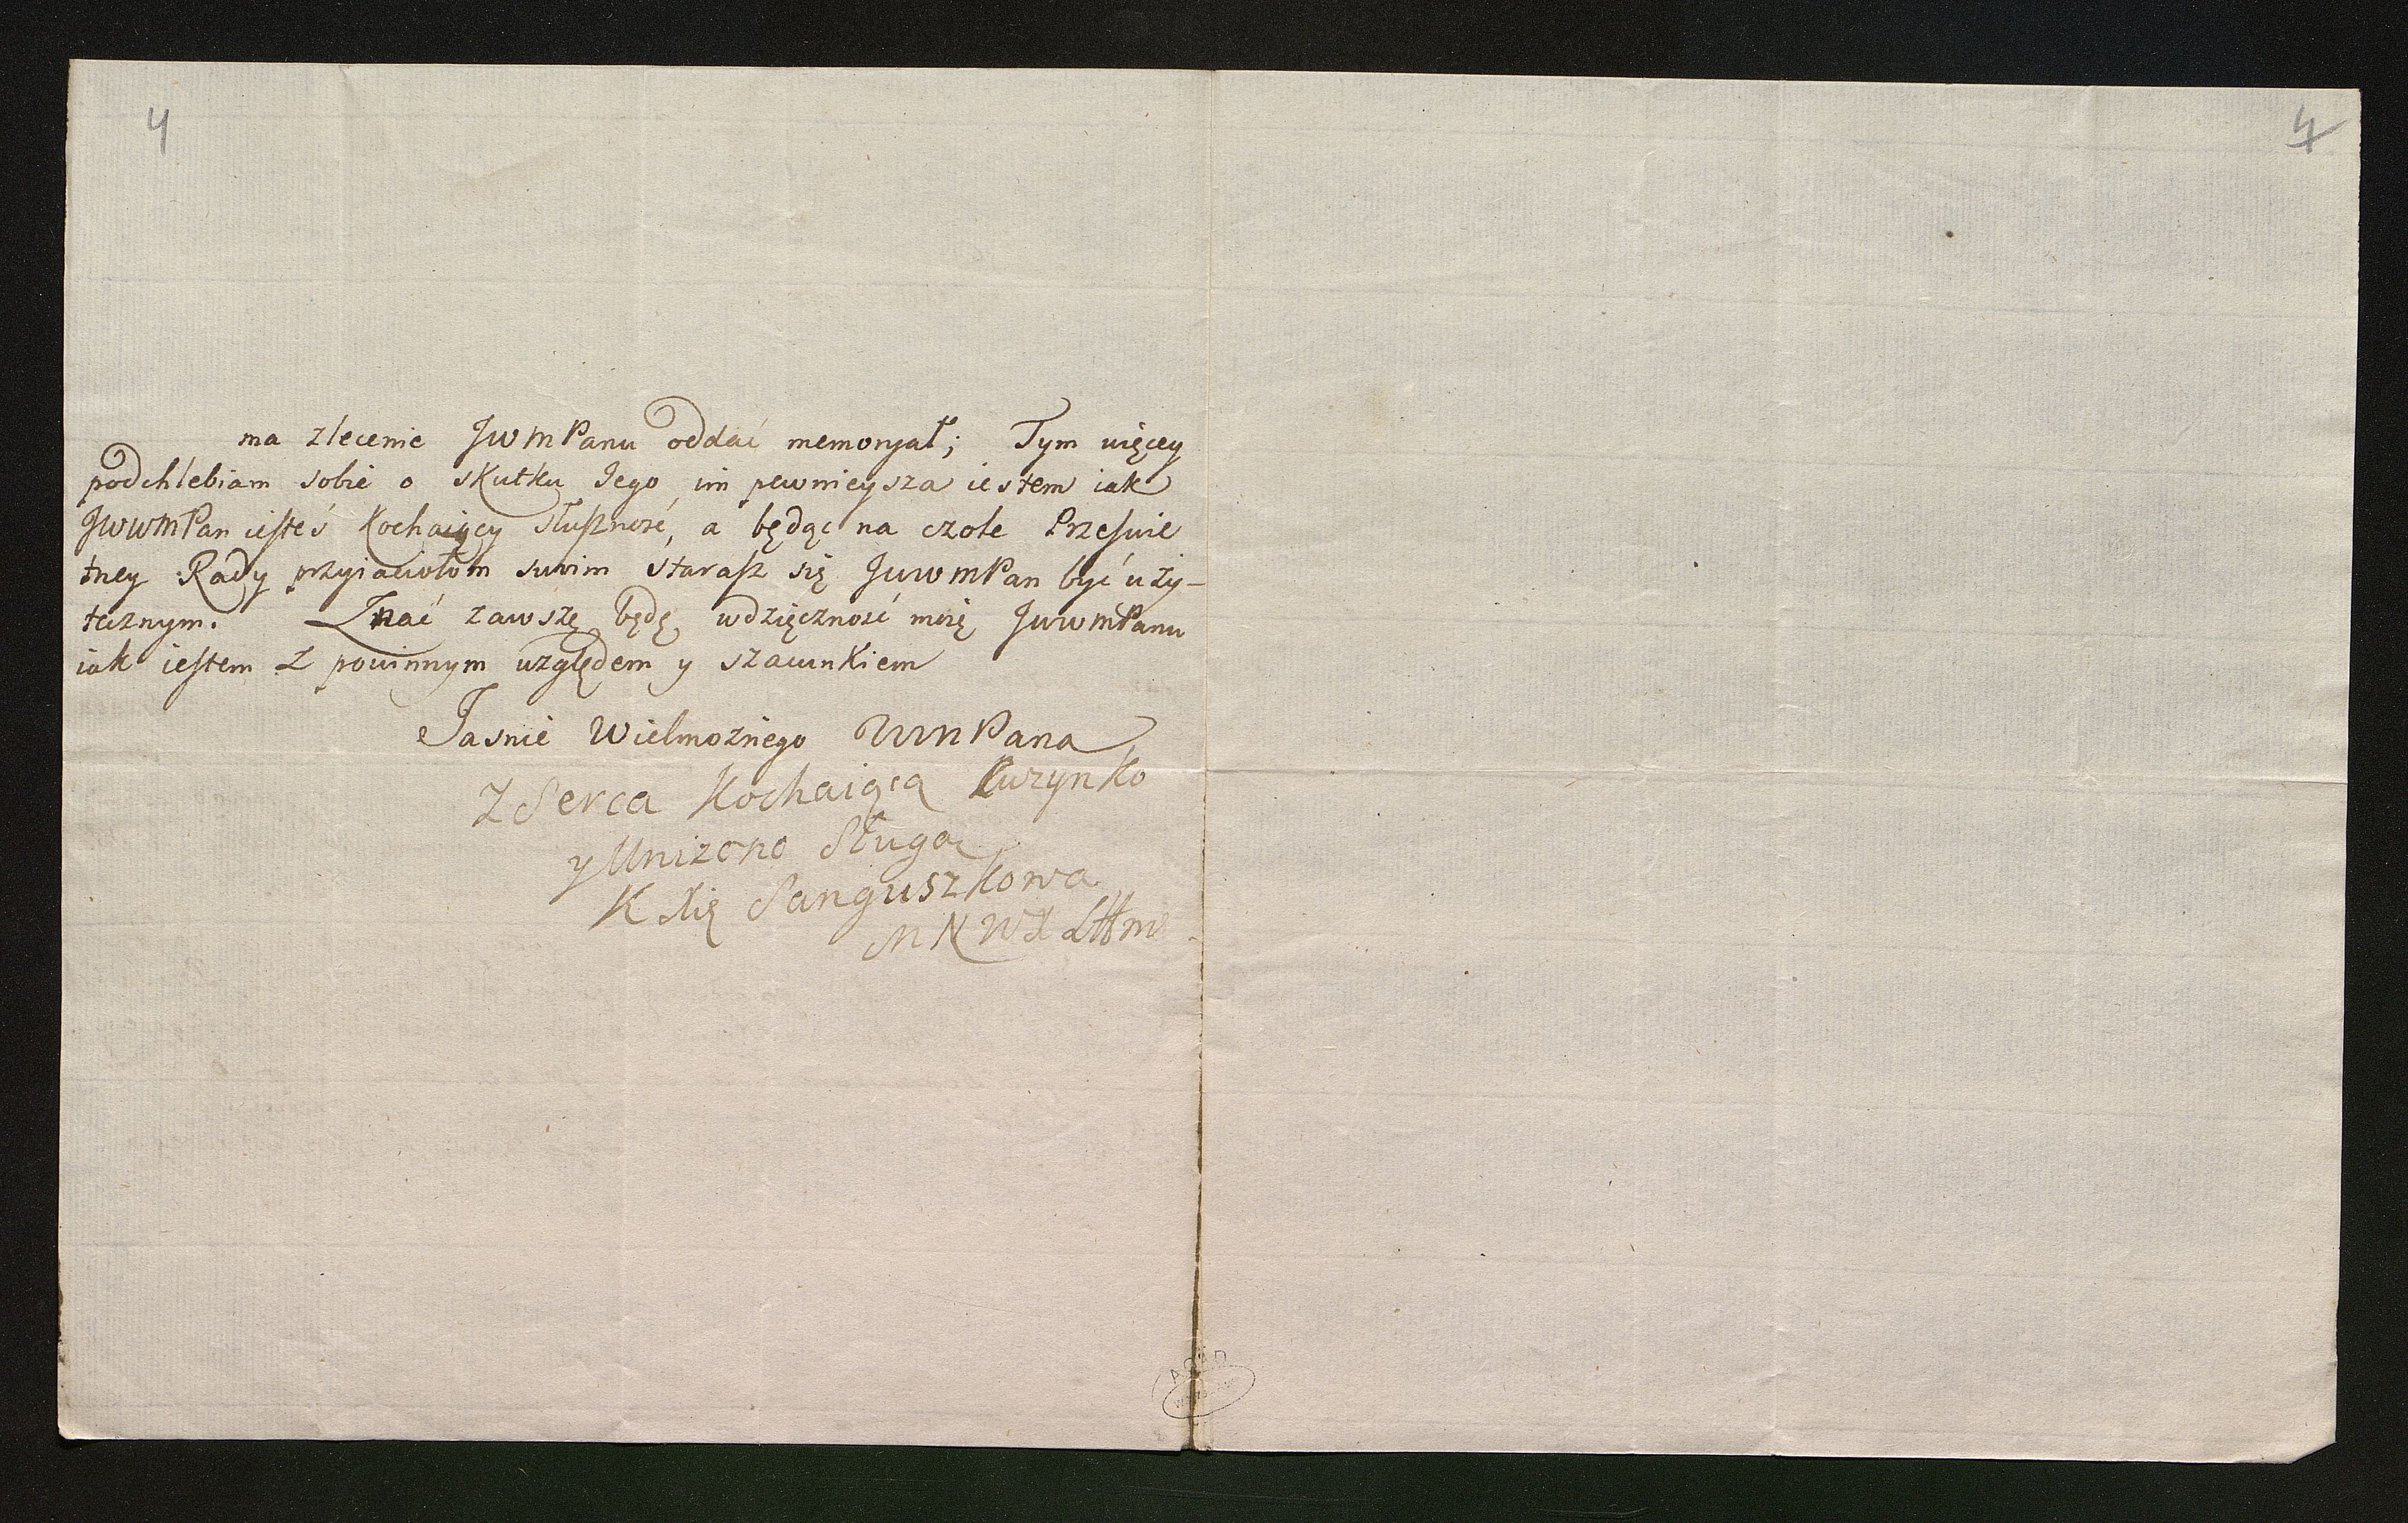 4
4
ma zlecenie JWMPanu oddać memoryał; Tym więcey
podchlebiam sobie o skutku Jego im pewnieysza iestem iak
JWWMPan iesteś kochaiący słuszność, a będąc na czole Przeswie
tney Rady przyiaciołom swim starasz się JWWMPan być uży-
tecznym. Znać zawszę będę wdzięczność moię JWWMPanu
iak iestem z powinnym względem y szacunkiem
Jasnie Wielmożnego WMPana
Z Serca Kochaiąca Kuzynko
y Unizono Sługa
K Xię Sanguszkowa
M N W X L